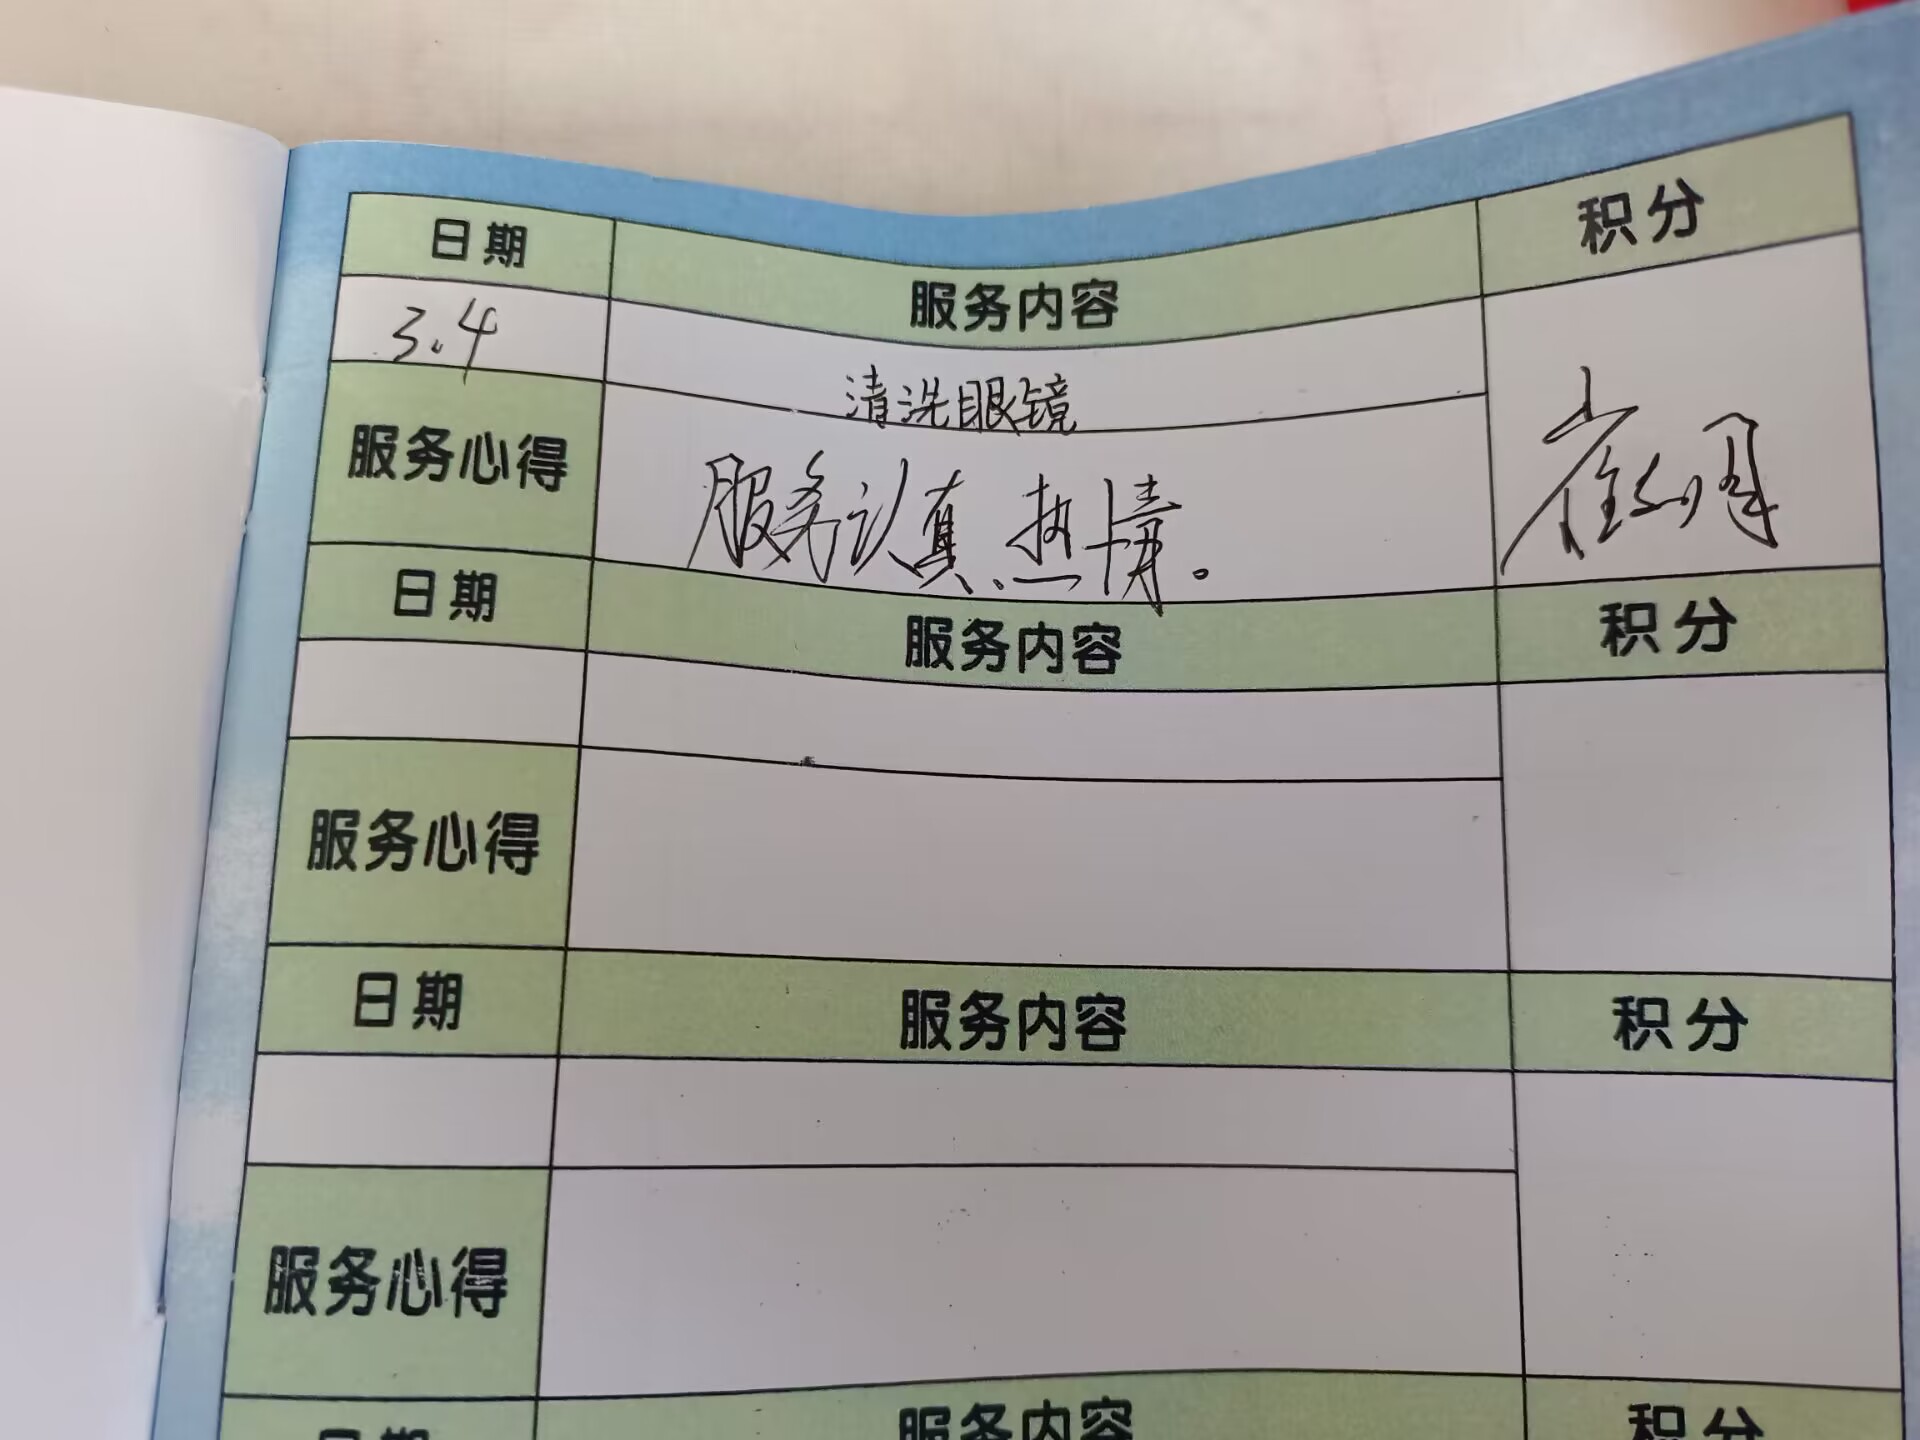 日期 服务内容 积分
3.4 清洗眼镜
服务心得 服务认真、热情。
日期 服务内容 积分
服务心得
日期 服务内容 积分
服务心得
日期 服务内容 积分